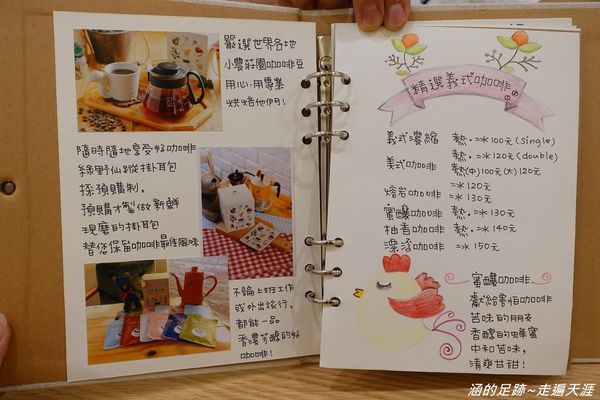 嚴選世界各地
小農莊園咖啡豆
用心.用專業
烘焙他們!
隨時隨地享受好咖啡
綠野仙蹤掛耳包
採預購制,
預購才製做新鮮
現磨的掛耳包
替您保留咖啡最佳風味
不論上班工作
或外出旅行,
都能一品
香濃芳醇的好
咖啡!
精選義式咖啡
義式濃縮 熱.=冰100元(single)
熱.=冰120元(double)
美式咖啡 熱(中)100元(大)120元
=冰120元
熔岩咖啡 =冰130元
蜜釀咖啡 熱.=冰130元
柚香咖啡 熱.=冰140元
漂浮咖啡 =冰150元
蜜釀咖啡
獻給害怕咖啡
苦味的朋友
香醇的蜂蜜
中和苦味,
清爽甘甜!
涵的足跡~走遍天涯